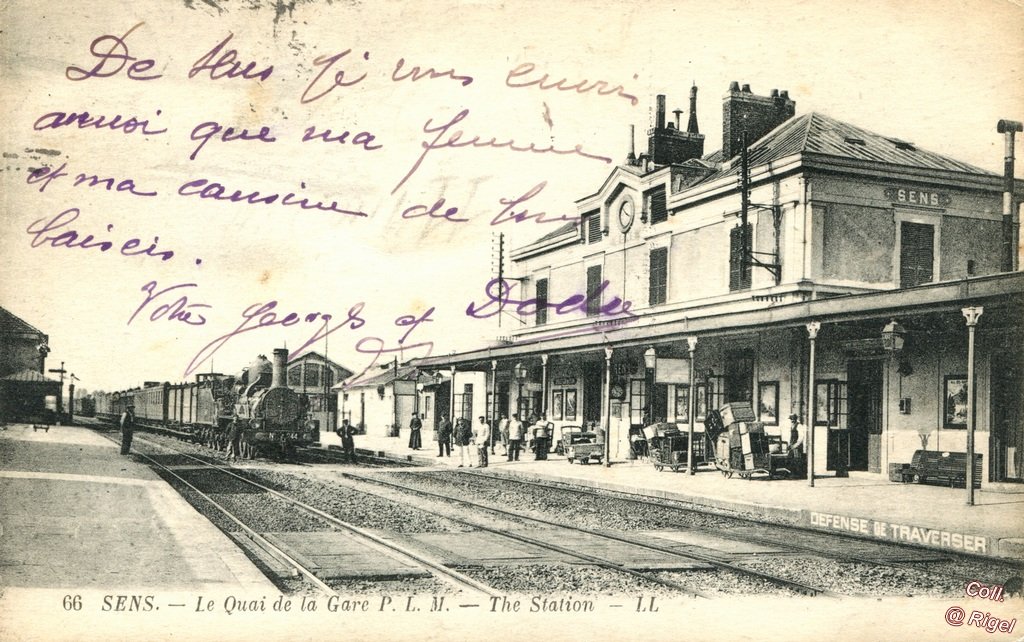 De Sens je vous envoie
ainsi que ma femme
et ma cousine de bons
baisers.
Votre Georges et Dodu
SENS
DEFENSE DE TRAVERSER
66 SENS. — Le Quai de la Gare P. L. M. — The Station — LL
Coll.
@ Rigel